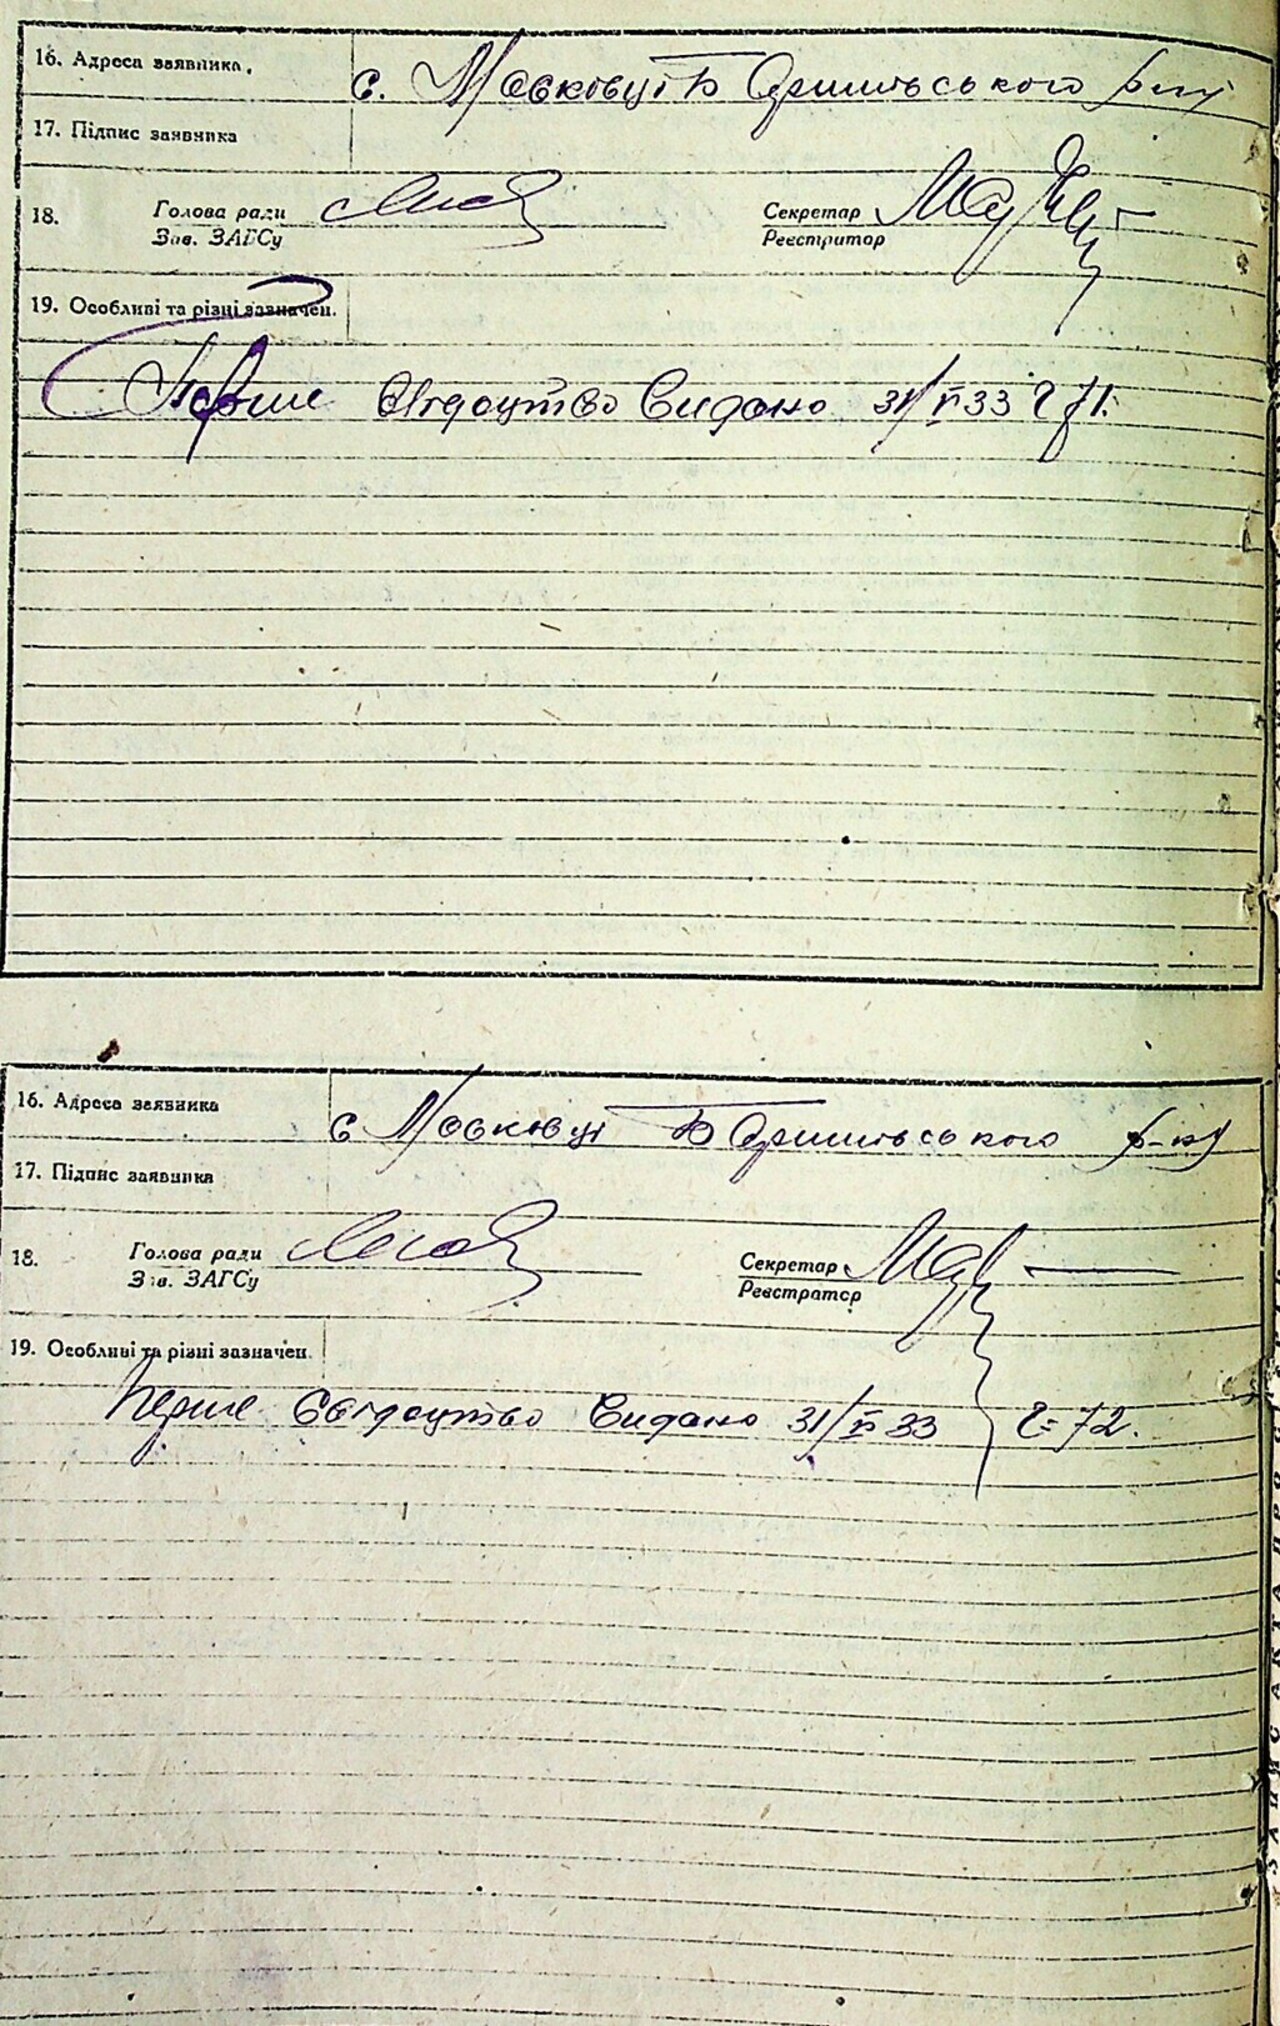 16. Адреса заявника.
с. Московці Б
17. Підпис заявника
18. Голова ради Секретар
Зав. ЗАГСу Реєстратор
19. Особливі та різні зазначен.
Перше свідоцтво видано 31/V 33 71.
16. Адреса заявника
с Московці Б р-ну
17. Підпис заявника
18. Голова ради Секретар
Зав. ЗАГСу Реєстратор
19. Особливі та різні зазначен.
Перше свідоцтво видано 31/V 33 72.